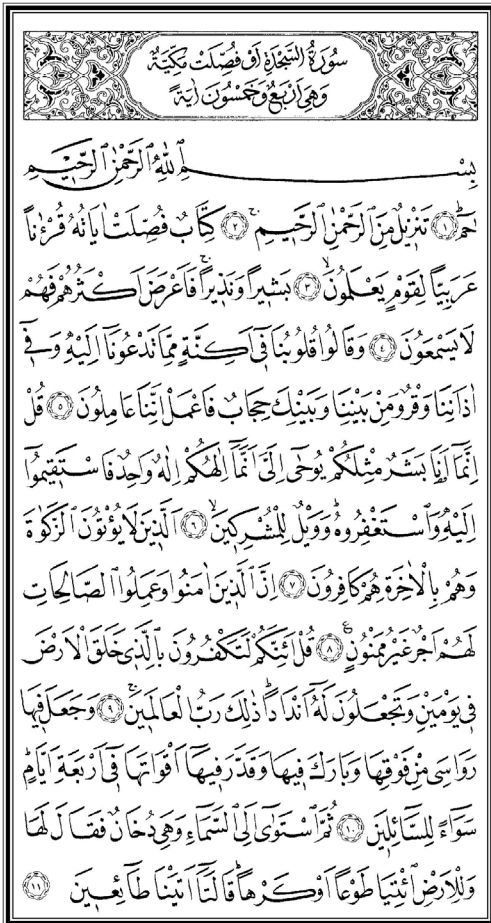 سُورَةُ السَّجْدَةِ اَوْ فُصِّلَتْ مَكِّيَّةٌ
وَهِيَ اَرْبَعٌ وَخَمْسُونَ اٰيَةً
بِسْمِ اللّٰهِ الرَّحْمٰنِ الرَّحِيمِ
حٰمٓ ﴿١﴾ تَنْزِيلٌ مِنَ الرَّحْمٰنِ الرَّحِيمِ ﴿٢﴾ كِتَابٌ فُصِّلَتْ اٰيَاتُهُ قُرْءٰناً
عَرَبِياًّ لِقَوْمٍ يَعْلَمُونَ ﴿٣﴾ بَشِيراً وَنَذِيراً فَاَعْرَضَ اَكْثَرُهُمْ فَهُمْ
لَا يَسْمَعُونَ ﴿٤﴾ وَقَالُوا قُلُوبُنَا فِٓى اَكِنَّةٍ مِمَّا تَدْعُونَٓا اِلَيْهِ وَفِٓى
اٰذَانِنَا وَقْرٌ وَمِنْ بَيْنِنَا وَبَيْنِكَ حِجَابٌ فَاعْمَلْ اِنَّنَا عَامِلُونَ ﴿٥﴾ قُلْ
اِنَّمَٓا اَنَا بَشَرٌ مِثْلُكُمْ يُوحٰٓى اِلَيَّ اَنَّمَٓا اِلٰهُكُمْ اِلٰهٌ وَاحِدٌ فَاسْتَقِيمُٓوا
اِلَيْهِ وَاسْتَغْفِرُوهُ وَوَيْلٌ لِلْمُشْرِكِينَ ﴿٦﴾ اَلَّذِينَ لَا يُؤْتُونَ الزَّكٰوةَ
وَهُمْ بِالْاٰخِرَةِ هُمْ كَافِرُونَ ﴿٧﴾ اِنَّ الَّذِينَ اٰمَنُوا وَعَمِلُوا الصَّالِحَاتِ
لَهُمْ اَجْرٌ غَيْرُ مَمْنُونٍ ﴿٨﴾ قُلْ اَئِنَّكُمْ لَتَكْفُرُونَ بِالَّذِى خَلَقَ الْاَرْضَ
فِى يَوْمَيْنِ وَتَجْعَلُونَ لَهُٓ اَنْدَاداً ذٰلِكَ رَبُّ الْعَالَمِينَ ﴿٩﴾ وَجَعَلَ فِيهَا
رَوَاسِىَ مِنْ فَوْقِهَا وَبَارَكَ فِيهَا وَقَدَّرَ فِيهَٓا اَقْوَاتَهَا فِٓى اَرْبَعَةِ اَيَّامٍ
سَوَٓاءً لِلسَّٓائِلِينَ ﴿١٠﴾ ثُمَّ اسْتَوٰٓى اِلَى السَّمَٓاءِ وَهِيَ دُخَانٌ فَقَالَ لَهَا
وَلِلْاَرْضِ ائْتِيَا طَوْعاً اَوْ كَرْهاً قَالَتَٓا اَتَيْنَا طَٓائِعِينَ ﴿١١﴾